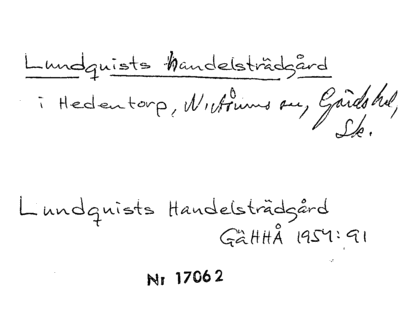 Lundquists handelsträdgård
i Hedentorp,
Sk.
Lundquists Handelsträdgård
GäHHÅ 1954:91
Nr 17062